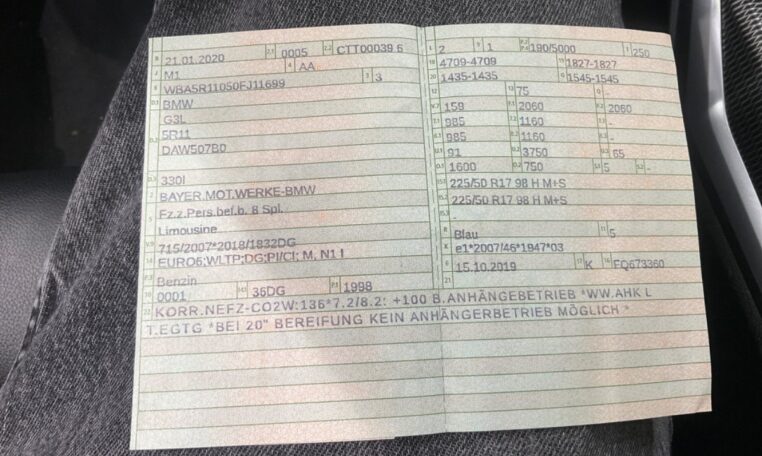 B 21.01.2020 2.1 0005 2.2 CTT00039 6
J M1 4 AA
E WBA5R11050FJ11699 3 3
D.1 BMW
G3L
D.2 5R11
DAW507B0
D.3 330I
2 BAYER.MOT.WERKE-BMW
5 Fz.z.Pers.bef.b. 8 Spl.
Limousine
V.9 715/2007*2018/1832DG
14 EURO6;WLTP;DG;PI/CI; M, N1 I
P.3 Benzin
10 0001 14.1 36DG P.1 1998
22 KORR.NEFZ-CO2W:136*7.2/8.2: +100 B.ANHÄNGEBETRIEB *WW.AHK L
T.EGTG *BEI 20" BEREIFUNG KEIN ANHÄNGERBETRIEB MÖGLICH *
L 2 9 1 P.2 P.4 190/5000 T 250
18 4709-4709 19 1827-1827
20 1435-1435 G 1545-1545
12 - 13 75 Q -
V.7 159 F.1 2060 F.2 2060
7.1 985 7.2 1160 7.3 -
8.1 985 8.2 1160 8.3 -
U.1 91 U.2 3750 U.3 65
O.1 1600 O.2 750 S.1 5 S.2 -
15.1 225/50 R17 98 H M+S
15.2 225/50 R17 98 H M+S
15.3 -
R Blau 11 5
K e1*2007/46*1947*03
6 15.10.2019 17 K 16 FQ673360
21